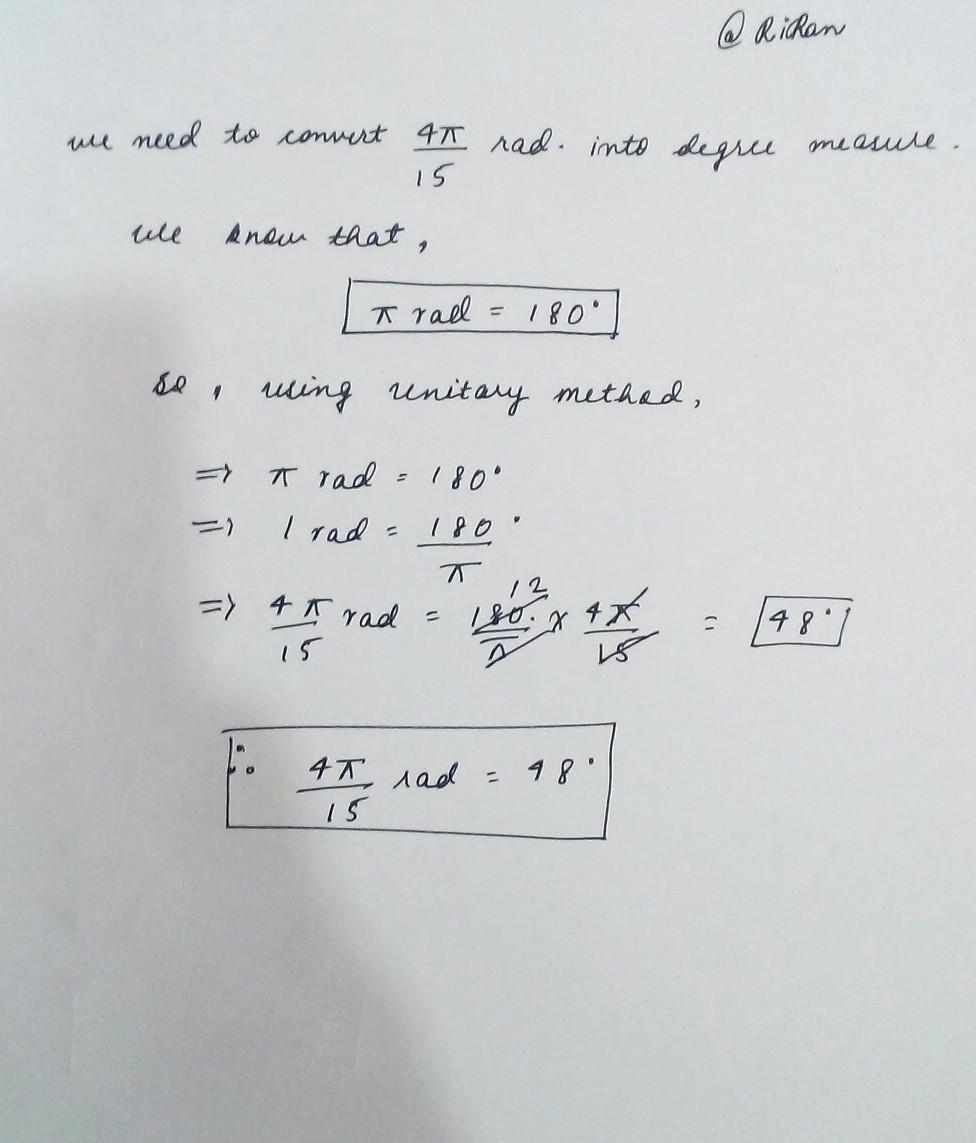 @ RiRan
we need to convert 4π/15 rad. into degree measure.
we know that,
π rad = 180°
so, using unitary method,
=> π rad = 180°
=> 1 rad = 180°/π
=> 4π/15 rad = 180°/π x 4π/15 = 48°
12
∴ 4π/15 rad = 48°